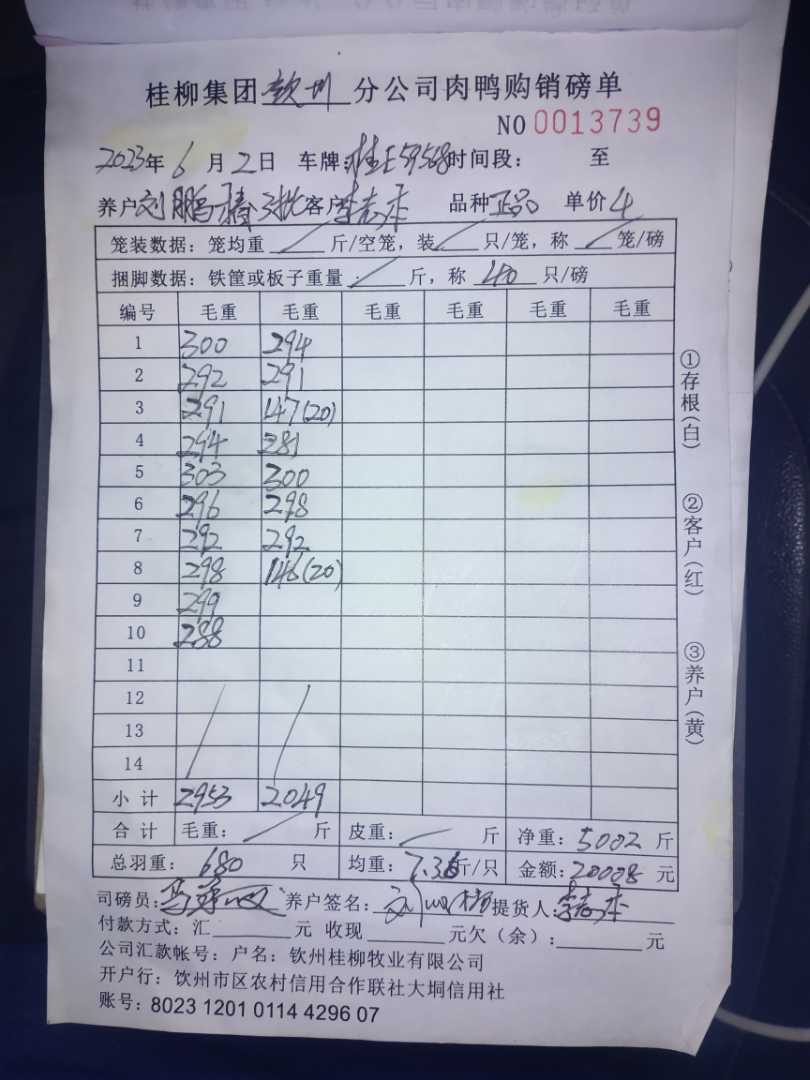 桂柳集团 钦州 分公司肉鸭购销磅单
NO 0013739
2023年 6 月 2 日 车牌:桂E59568时间段: 至
养户刘鹏 3批客户李志本 品种正品 单价4
笼装数据: 笼均重 斤/空笼, 装 只/笼, 称 笼/磅
捆脚数据: 铁筐或板子重量 斤, 称 40 只/磅
编号 毛重 毛重 毛重 毛重 毛重 毛重
1 300 294
2 292 291
3 291 147(20)
4 294 281
5 303 300
6 296 298
7 292 292
8 298 146(20)
9 299
10 288
11
12
13
14
小计 2953 2049
合计 毛重: 斤 皮重: 斤 净重: 5002 斤
总羽重: 680 只 均重: 7.36斤/只 金额: 20008 元
司磅员: 养户签名: 提货人:李志本
付款方式: 汇 元 收现 元欠(余): 元
公司汇款帐号: 户名: 钦州桂柳牧业有限公司
开户行: 钦州市区农村信用合作联社大垌信用社
账号: 8023 1201 0114 4296 07
①存根(白)
②客户(红)
③养户(黄)